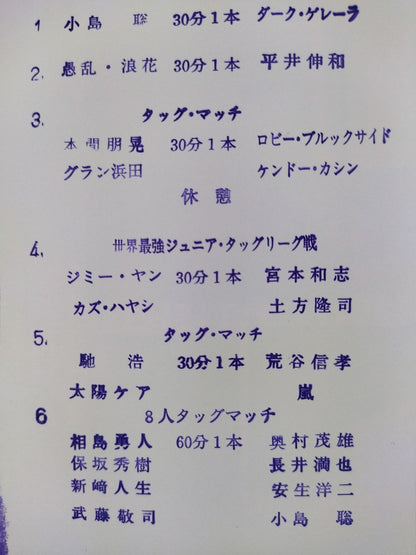 1 小島 聡 30分1本 ダーク・ゲレーラ
2. 愚乱・浪花 30分1本 平井伸和
3. タッグ・マッチ
本間朋晃 30分1本 ロビー・ブルックサイド
グラン浜田 ケンドー・カシン
休憩
4. 世界最強ジュニア・タッグリーグ戦
ジミー・ヤン 30分1本 宮本和志
カズ・ハヤシ 土方隆司
5. タッグ・マッチ
馳 浩 30分1本 荒谷信孝
太陽ケア 嵐
6 8人タッグマッチ
相島勇人 60分1本 奥村茂雄
保坂秀樹 長井満也
新崎人生 安生洋二
武藤敬司 小島 聡